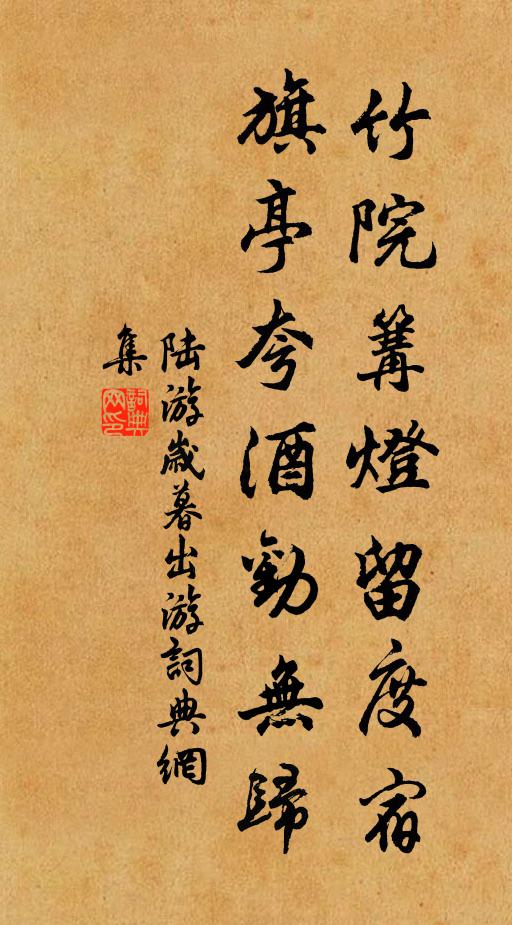 竹院篝燈留度宿
旗亭夸酒勸無歸
陆游歲暮出游詞典網
集
詞典
网印